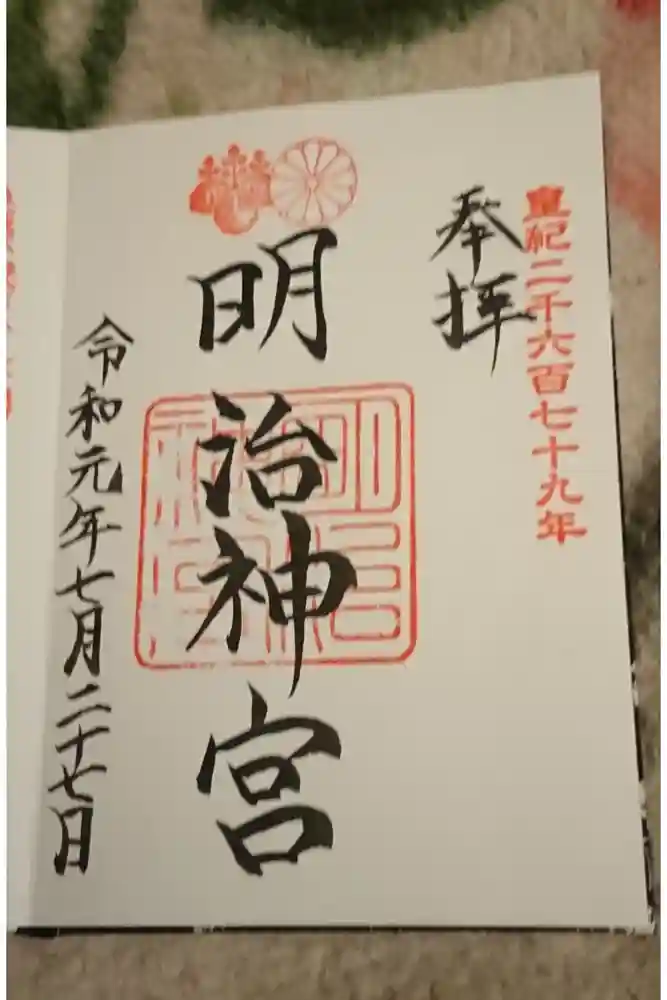 皇紀二千六百七十九年
奉拝
明治神宮
明治神宮
令和元年七月二十七日